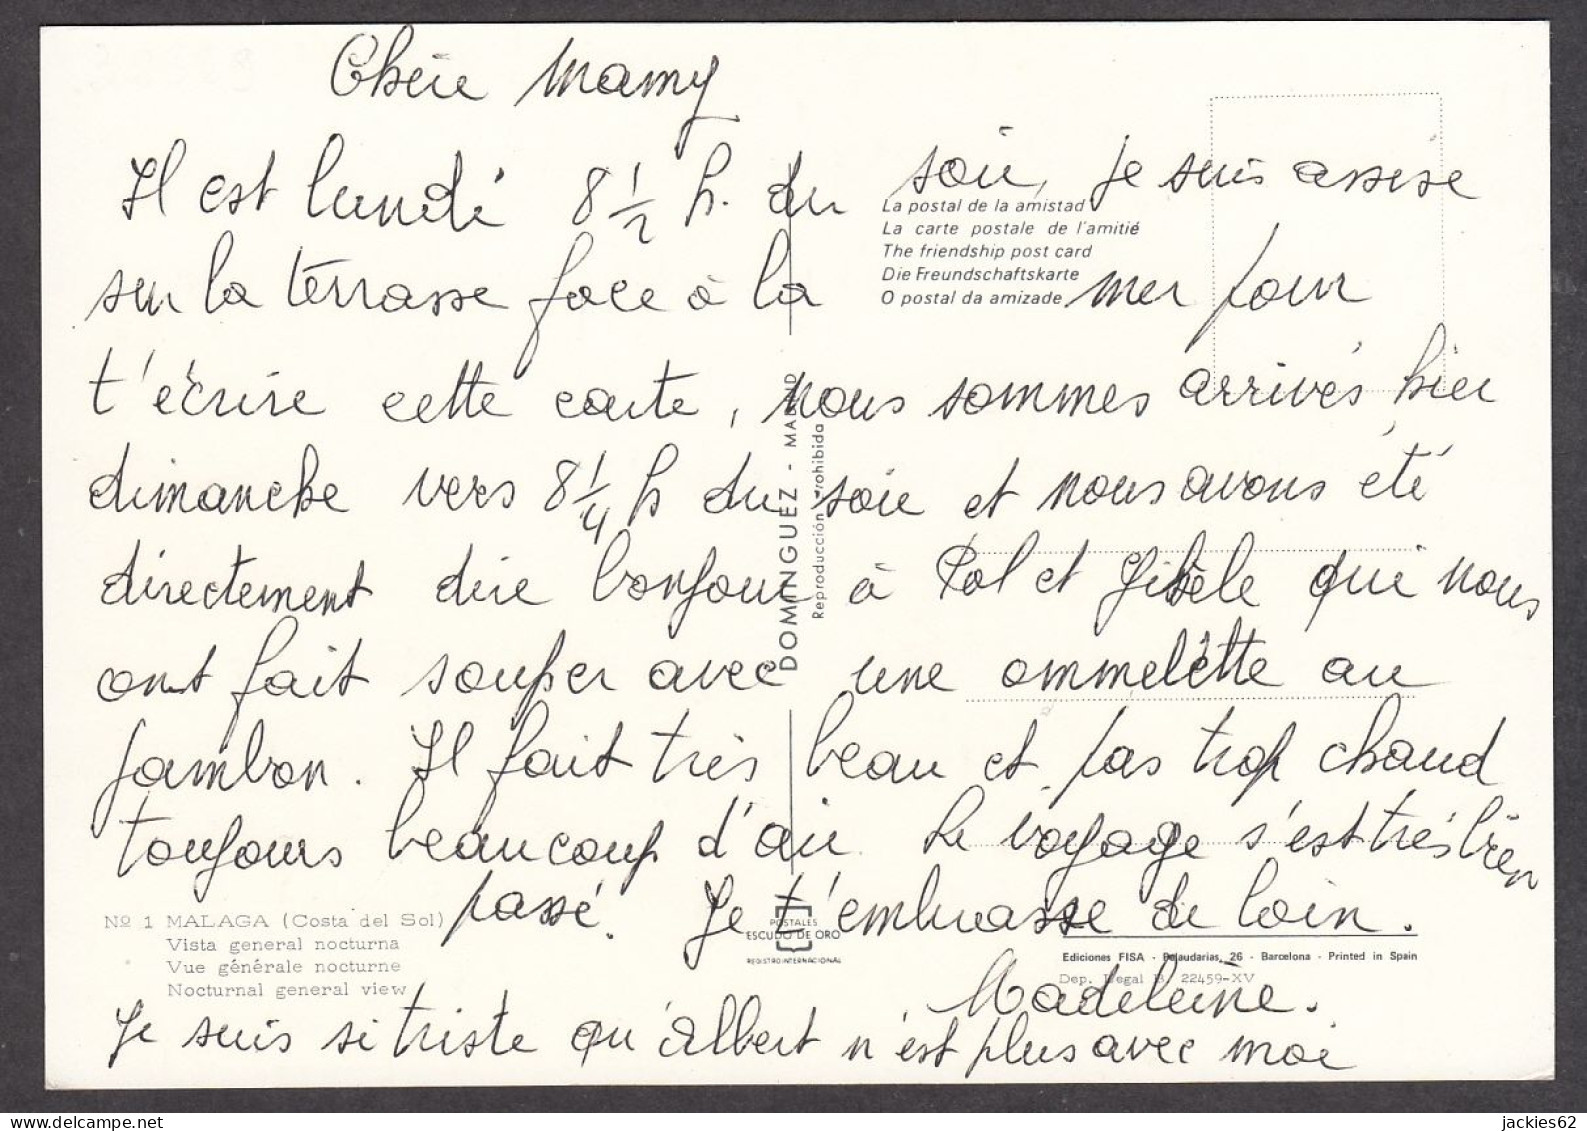 Chère Mamy
Il est lundi 8 1/2 h. du soir, je suis assise
La postal de la amistad
La carte postale de l'amitié
The friendship post card
Die Freundschaftskarte
O postal da amizade
sur la terrasse face à la mer pour
t'écrire cette carte, nous sommes arrivés hier
dimanche vers 8 1/4 h du soir et nous avons été
directement dire bonjour à Pol et Gisèle qui nous
ont fait souper avec une ommelètte au
jambon. Il fait très beau et pas trop chaud
toujours beaucoup d'air. Le voyage s'est très bien
passé. Je t'embrasse de loin.
Madeleine.
Je suis si triste qu'Albert n'est plus avec moi
DOMINGUEZ - MADRID
Reproducción prohibida
Nº 1 MALAGA (Costa del Sol)
Vista general nocturna
Vue générale nocturne
Nocturnal general view
POSTALES
ESCUDO DE ORO
REGISTRO INTERNACIONAL
Ediciones FISA - Palaudarias, 26 - Barcelona - Printed in Spain
Dep. Legal B. 22459-XV
jackies62